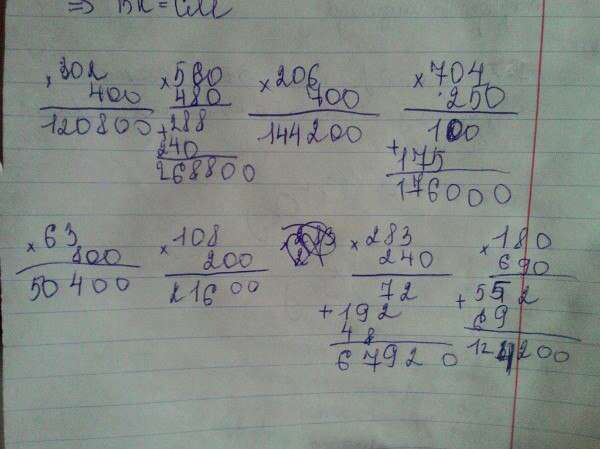 ⇒ BK = CM
× 302
400
120800
× 560
480
+ 288
240
268800
× 206
700
144200
× 704
250
100
+ 175
176000
× 63
800
50400
× 108
200
21600
× 283
240
72
+ 192
48
67920
× 180
690
+ 552
69
124200